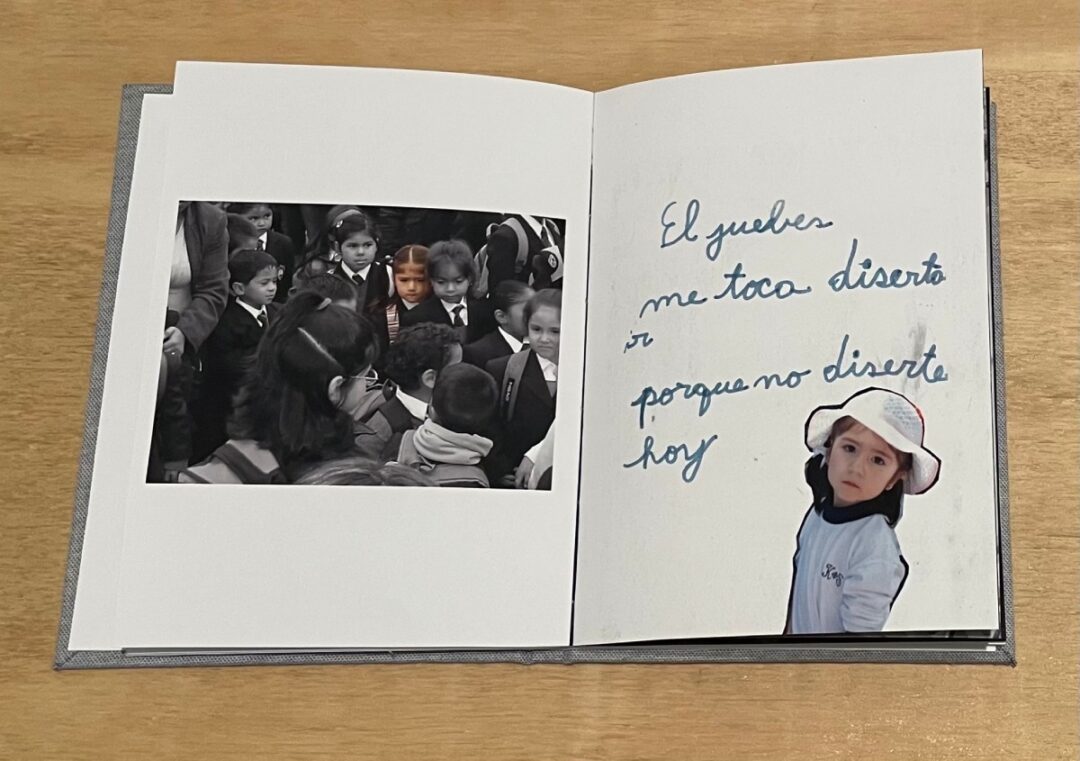 El juebes
me toca diserta
ir
porque no diserte
hoy